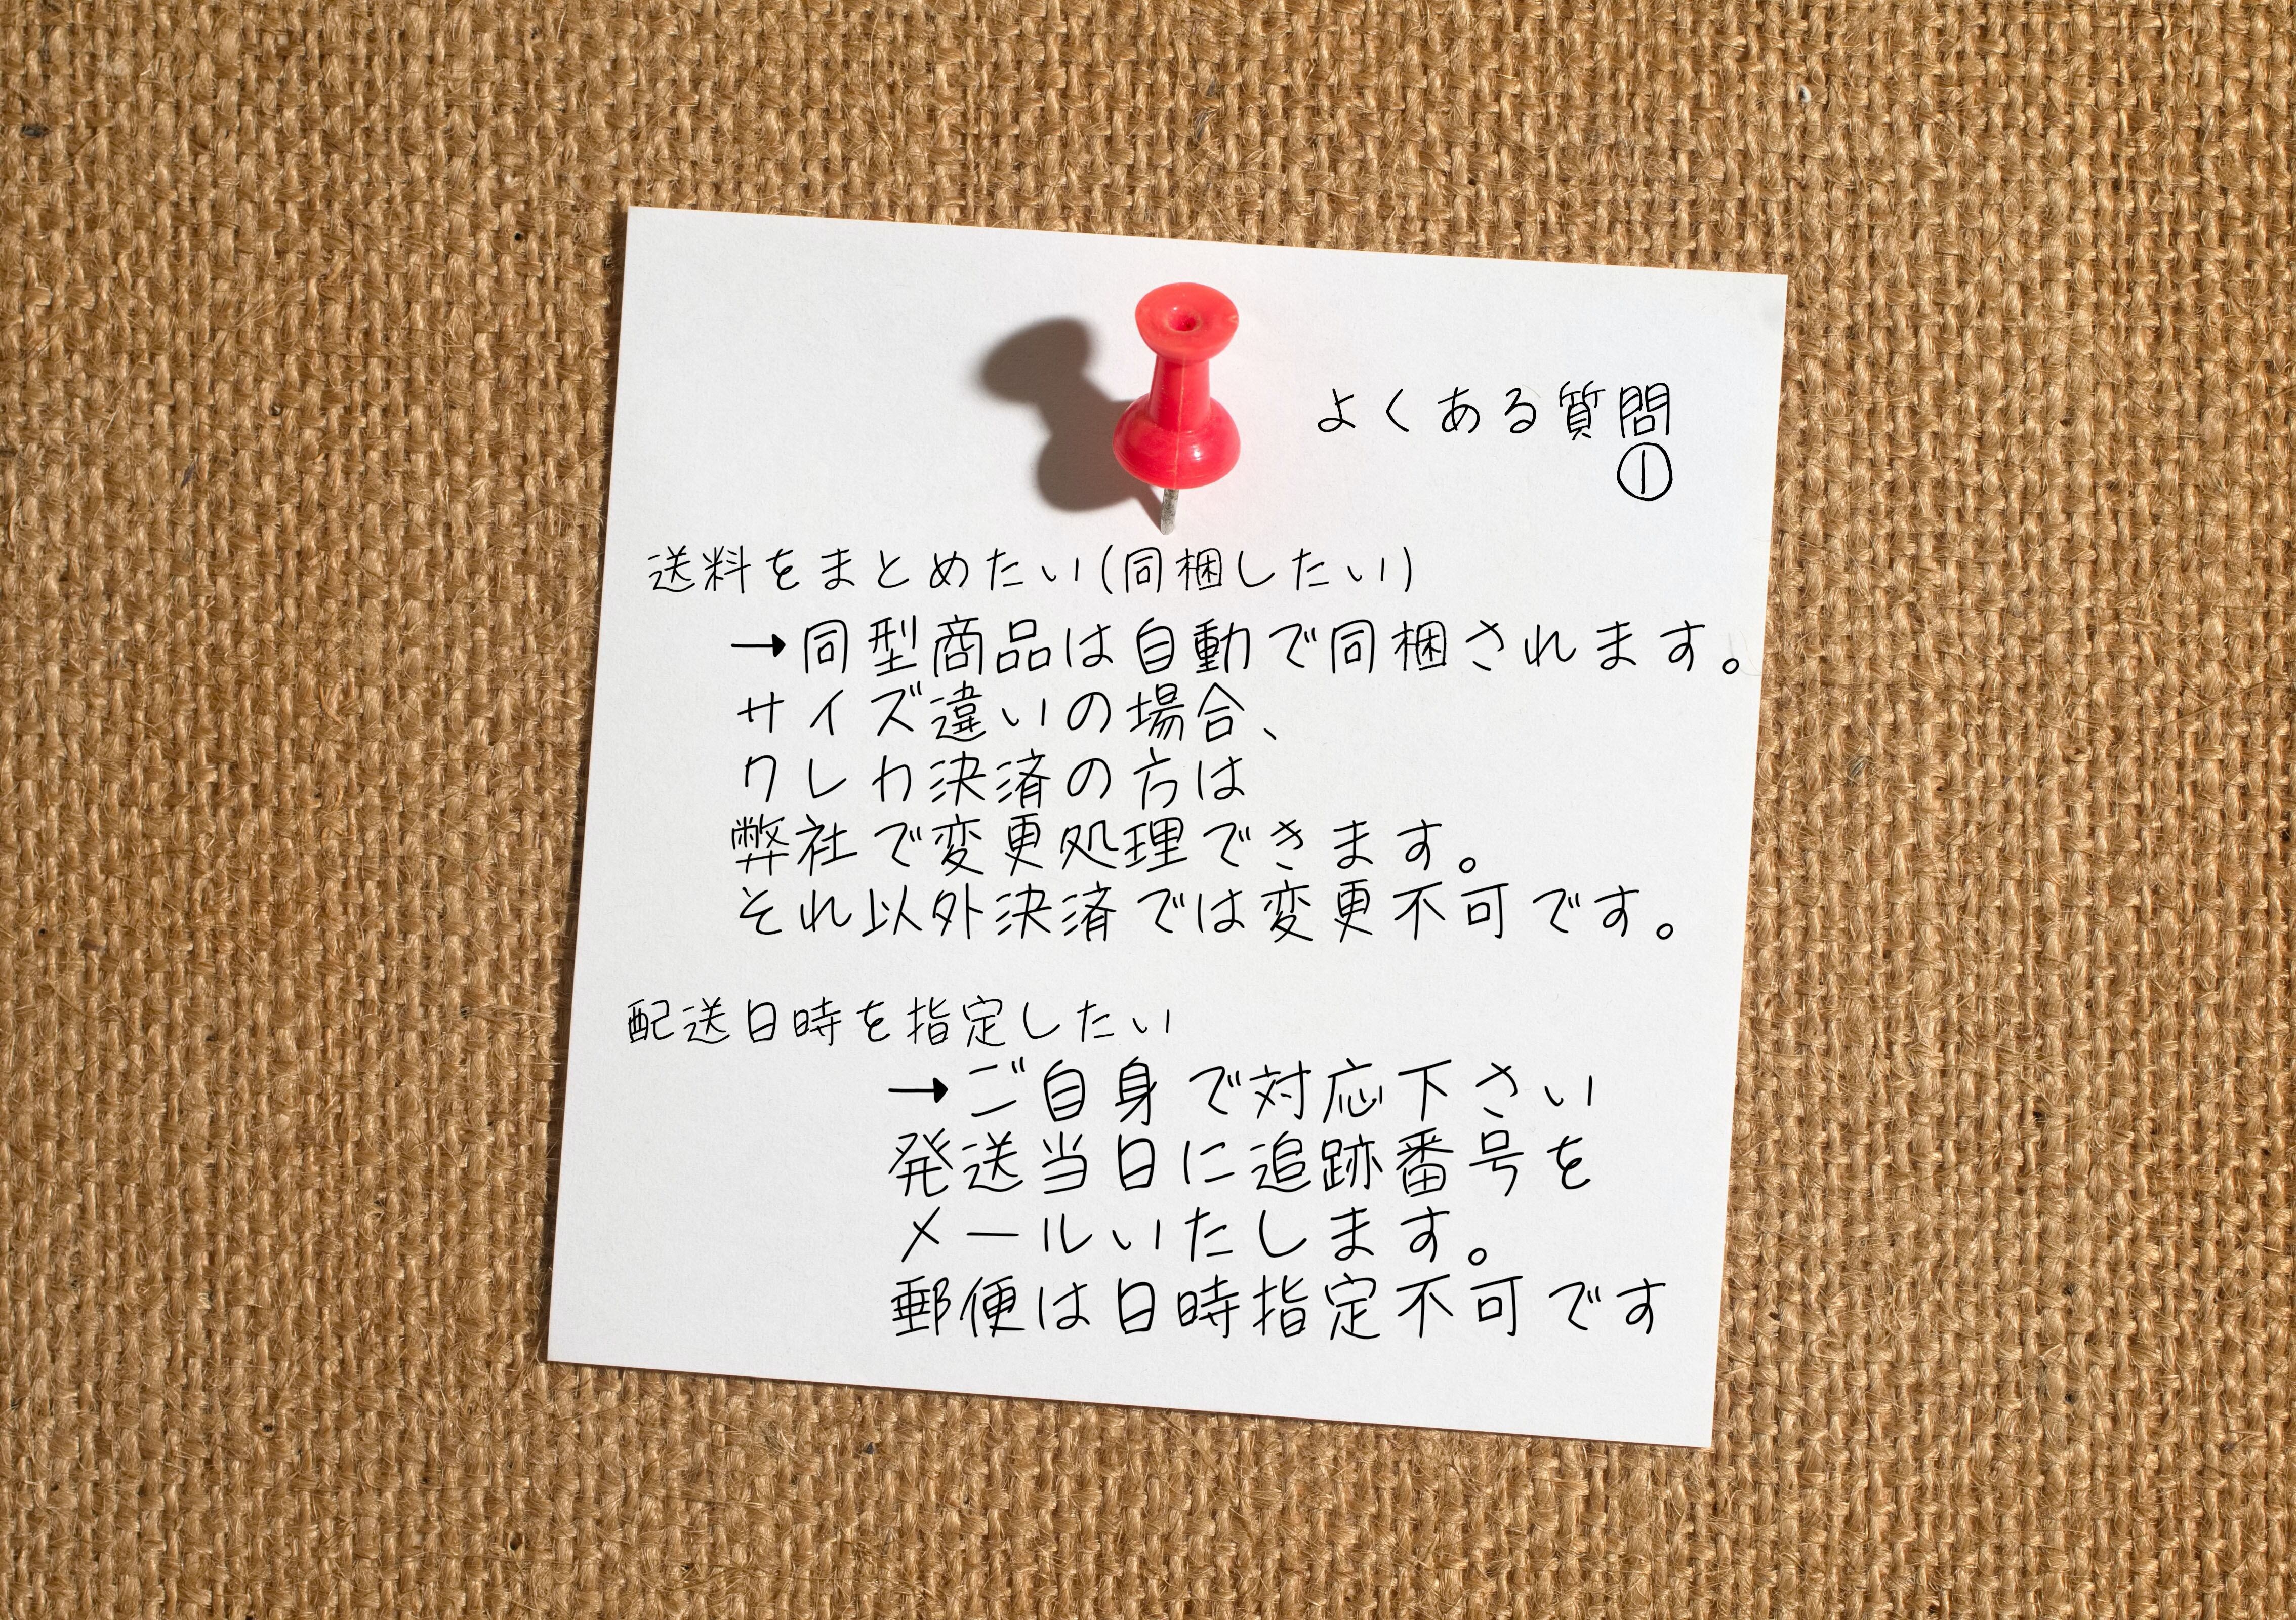 よくある質問
①
送料をまとめたい(同梱したい)
→同型商品は自動で同梱されます。
サイズ違いの場合、
クレカ決済の方は
弊社で変更処理できます。
それ以外決済では変更不可です。
配送日時を指定したい
→ご自身で対応下さい
発送当日に追跡番号を
メールいたします。
郵便は日時指定不可です